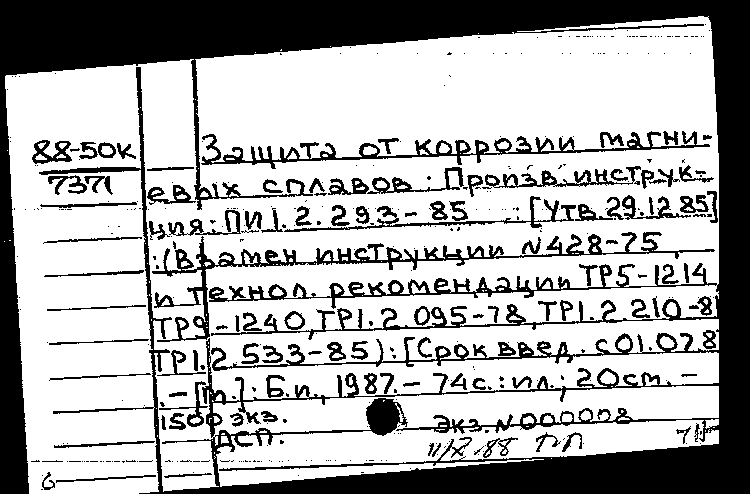 88-50К
7371
Защита от коррозии магни-
евых сплавов: Произв. инструк-
ция: ПИ 1.2.293-85 : [Утв. 29.12.85]
: (Взамен инструкции N428-75
и технол. рекомендации ТР5-1214,
ТР9-1240, ТР1.2.095-78, ТР1.2.210-8
ТР1.2.533-85) : [Срок введ. с 01.07.8
. - [М.] : Б.и., 1987. - 74с. : ил.; 20см. -
1500 экз.
ДСП. Экз. N000008
11/X-88
6